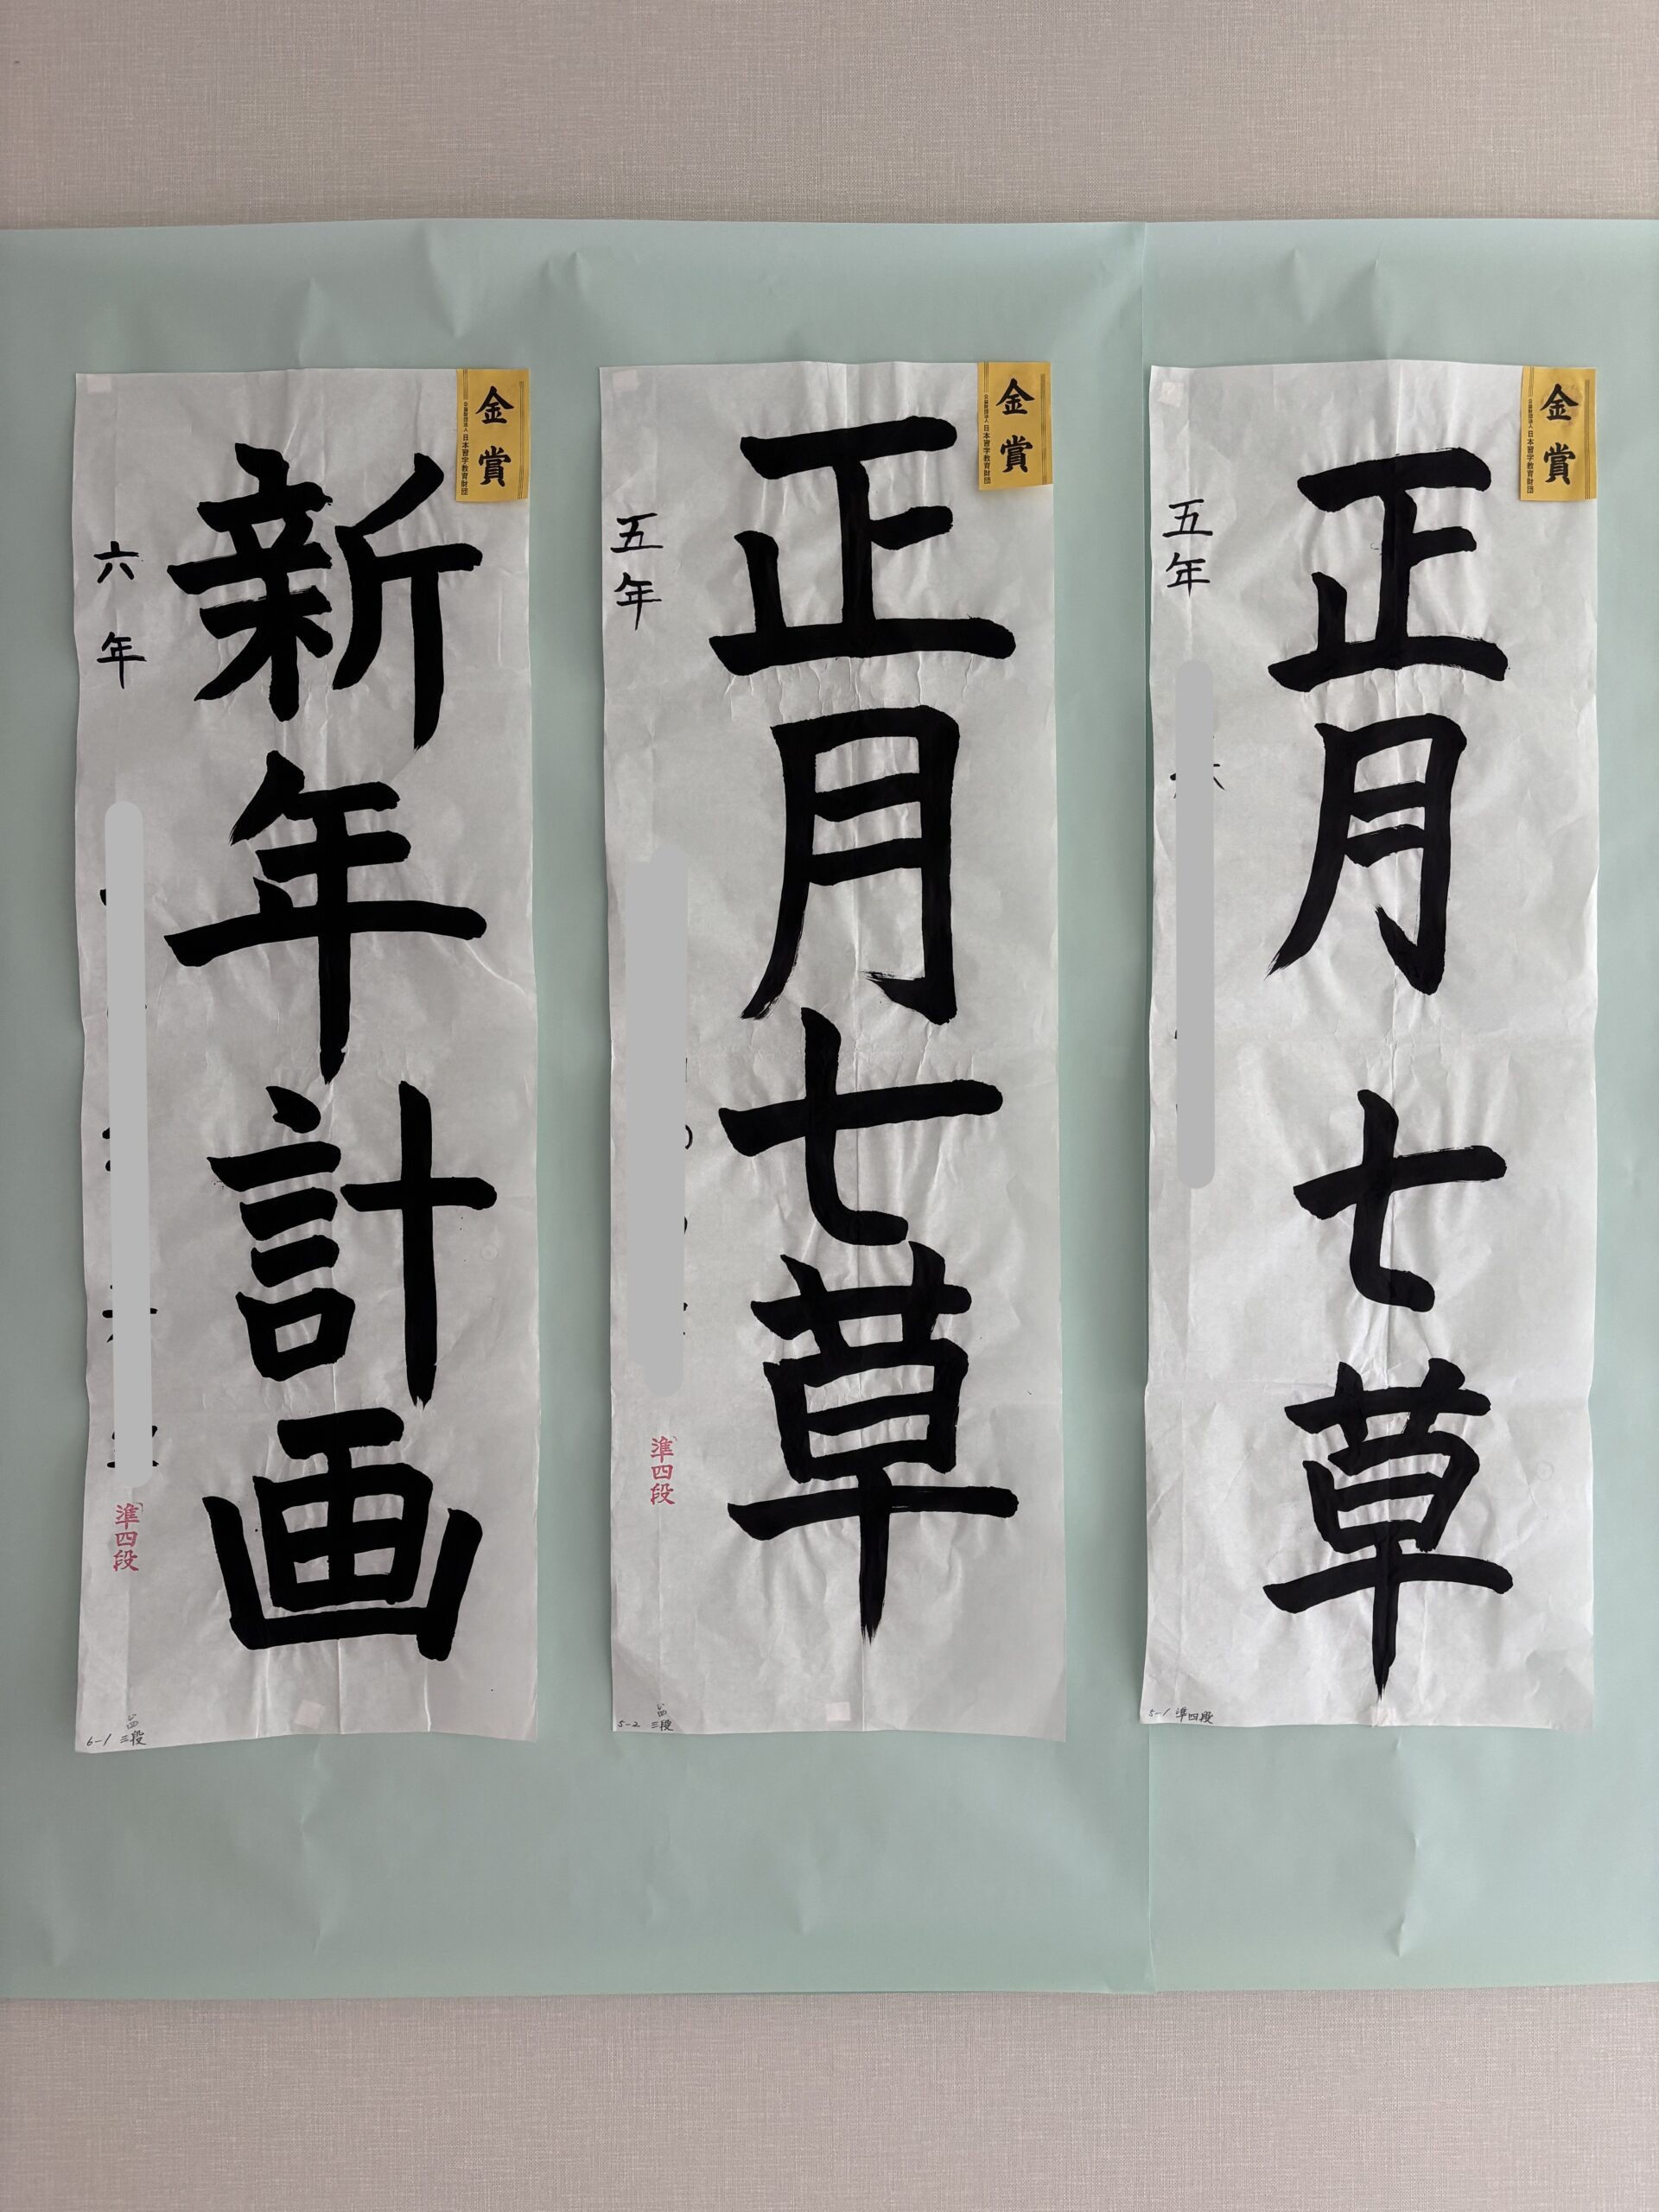 金賞
公益財団法人 日本習字教育財団
正月七草
五年
5-1 準四段
金賞
公益財団法人 日本習字教育財団
正月七草
五年
準四段
5-2 三段
金賞
公益財団法人 日本習字教育財団
新年計画
六年
準四段
6-1 三段